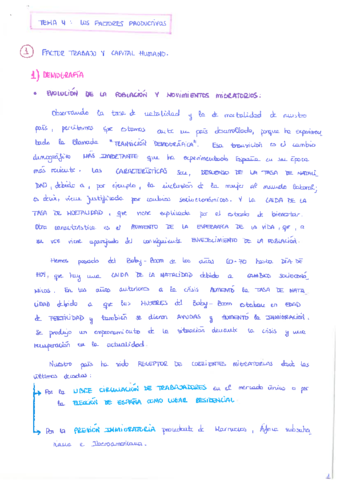 TEMA 4: LOS FACTORES PRODUCTIVOS
1 FACTOR TRABAJO Y CAPITAL HUMANO.
1) DEMOGRAFÍA
• EVOLUCIÓN DE LA POBLACIÓN Y MOVIMIENTOS MIGRATORIOS.
Observando la tasa de natalidad y la de mortalidad de nuestro
país, percibimos que estamos ante un país desarrollado, porque ha experimen
tado la llamada "TRANSICIÓN DEMOGRÁFICA". Esa transición es el cambio
demográfico MÁS IMPORTANTE que ha experimentado España en su época
más reciente. Las CARACTERÍSTICAS son, DESCENSO DE LA TASA DE NATALI
DAD, debido a, por ejemplo, la inclusión de la mujer al mundo laboral,
es decir, viene justificada por causas socioeconómicas. Y LA CAÍDA DE LA
TASA DE MORTALIDAD, que viene explicada por el estado de bienestar.
Otra característica es el AUMENTO DE LA ESPERANZA DE VIDA, que, a
su vez viene aparejado del consiguiente ENVEJECIMIENTO DE LA POBLACIÓN.
Hemos pasado del Baby-Boom de los años 60-70 hasta DÍA DE
HOY, que hay una CAÍDA DE LA NATALIDAD debido a CAMBIOS SOCIOECONÓ
MICOS. En los años anteriores a la crisis AUMENTÓ LA TASA DE NATA
LIDAD debido a que las MUJERES del Baby-Boom estaban en EDAD
DE FERTILIDAD y también se dieron AYUDAS y AUMENTÓ LA INMIGRACIÓN.
Se produjo un empeoramiento de la situación durante la crisis y una
recuperación en la actualidad.
Nuestro país ha sido RECEPTOR DE CORRIENTES MIGRATORIAS desde las
últimas décadas:
→ Por la LIBRE CIRCULACIÓN DE TRABAJADORES en el mercado único o por
la ELECCIÓN DE ESPAÑA COMO LUGAR RESIDENCIAL
→ Por la PRESIÓN INMIGRATORIA procedente de Marruecos, África subsaha
riana e Iberoamérica.